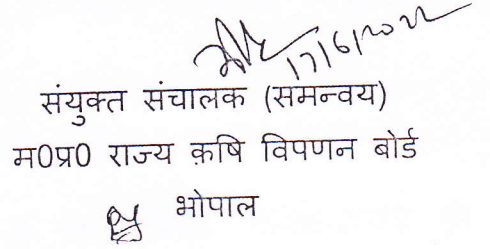 17/6/2022
संयुक्त संचालक (समन्वय)
म0प्र0 राज्य क़षि विपणन बोर्ड
भोपाल